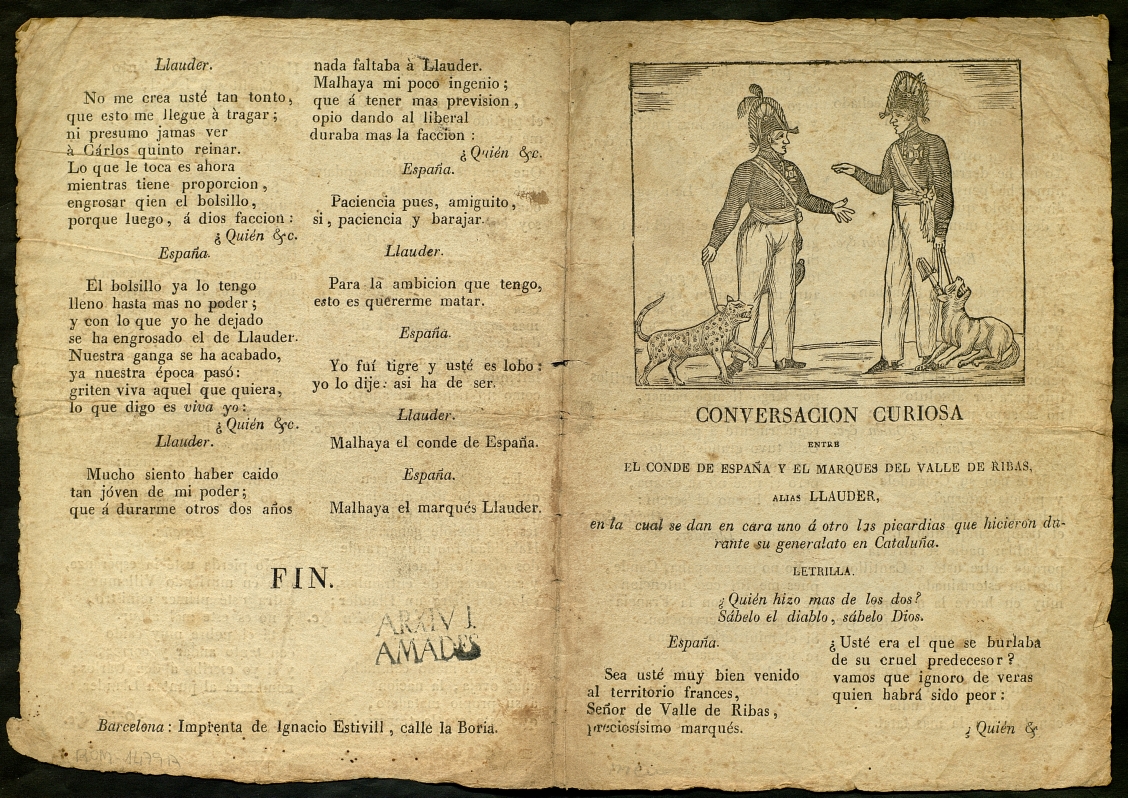 Llauder.
No me crea usté tan tonto,
que esto me llegue à tragar;
ni presumo jamas ver
à Cárlos quinto reinar.
Lo que le toca es ahora
mientras tiene proporcion,
engrosar qien el bolsillo,
porque luego, á dios faccion:
¿Quién &c.
España.
El bolsillo ya lo tengo
lleno hasta mas no poder;
y con lo que yo he dejado
se ha engrosado el de Llauder.
Nuestra ganga se ha acabado,
ya nuestra época pasó:
griten viva aquel que quiera,
lo que digo es viva yo:
¿Quién &c.
Llauder.
Mucho siento haber caido
tan jóven de mi poder;
que á durarme otros dos años
nada faltaba à Llauder.
Malhaya mi poco ingenio;
que á tener mas prevision,
opio dando al liberal
duraba mas la faccion:
¿Quién &c.
España.
Paciencia pues, amiguito,
si, paciencia y barajar.
Llauder.
Para la ambicion que tengo,
esto es quererme matar.
España.
Yo fuí tigre y usté es lobo:
yo lo dije: asi ha de ser.
Llauder.
Malhaya el conde de España.
España.
Malhaya el marqués Llauder.
FIN.
ARXIU J.
AMADES
Barcelona: Imprenta de Ignacio Estivill, calle la Boria.
CONVERSACION CURIOSA
ENTRE
EL CONDE DE ESPAÑA Y EL MARQUES DEL VALLE DE RIBAS,
ALIAS LLAUDER,
en la cual se dan en cara uno á otro las picardias que hicieron du-
rante su generalato en Cataluña.
LETRILLA.
¿Quién hizo mas de los dos?
Sábelo el diablo, sábelo Dios.
España.
Sea usté muy bien venido
al territorio frances,
Señor de Valle de Ribas,
preciosísimo marqués.
¿Usté era el que se burlaba
de su cruel predecesor?
vamos que ignoro de veras
quien habrá sido peor:
¿Quién &